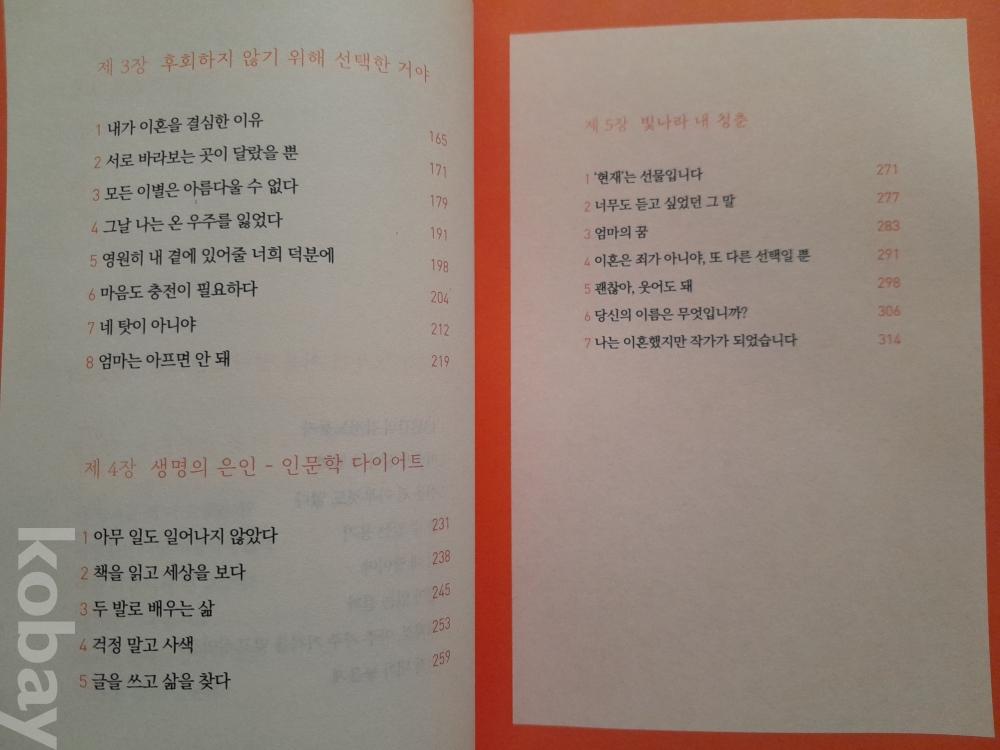 제 3장 후회하지 않기 위해 선택한 거야
1 내가 이혼을 결심한 이유 165
2 서로 바라보는 곳이 달랐을 뿐 171
3 모든 이별은 아름다울 수 없다 179
4 그날 나는 온 우주를 잃었다 191
5 영원히 내 곁에 있어줄 너희 덕분에 198
6 마음도 충전이 필요하다 204
7 네 탓이 아니야 212
8 엄마는 아프면 안 돼 219
제 4장 생명의 은인 - 인문학 다이어트
1 아무 일도 일어나지 않았다 231
2 책을 읽고 세상을 보다 238
3 두 발로 배우는 삶 245
4 걱정 말고 사색 253
5 글을 쓰고 삶을 찾다 259
제 5장 빛나라 내 청춘
1 '현재'는 선물입니다 271
2 너무도 듣고 싶었던 그 말 277
3 엄마의 꿈 283
4 이혼은 죄가 아니야, 또 다른 선택일 뿐 291
5 괜찮아, 웃어도 돼 298
6 당신의 이름은 무엇입니까? 306
7 나는 이혼했지만 작가가 되었습니다 314
kobay